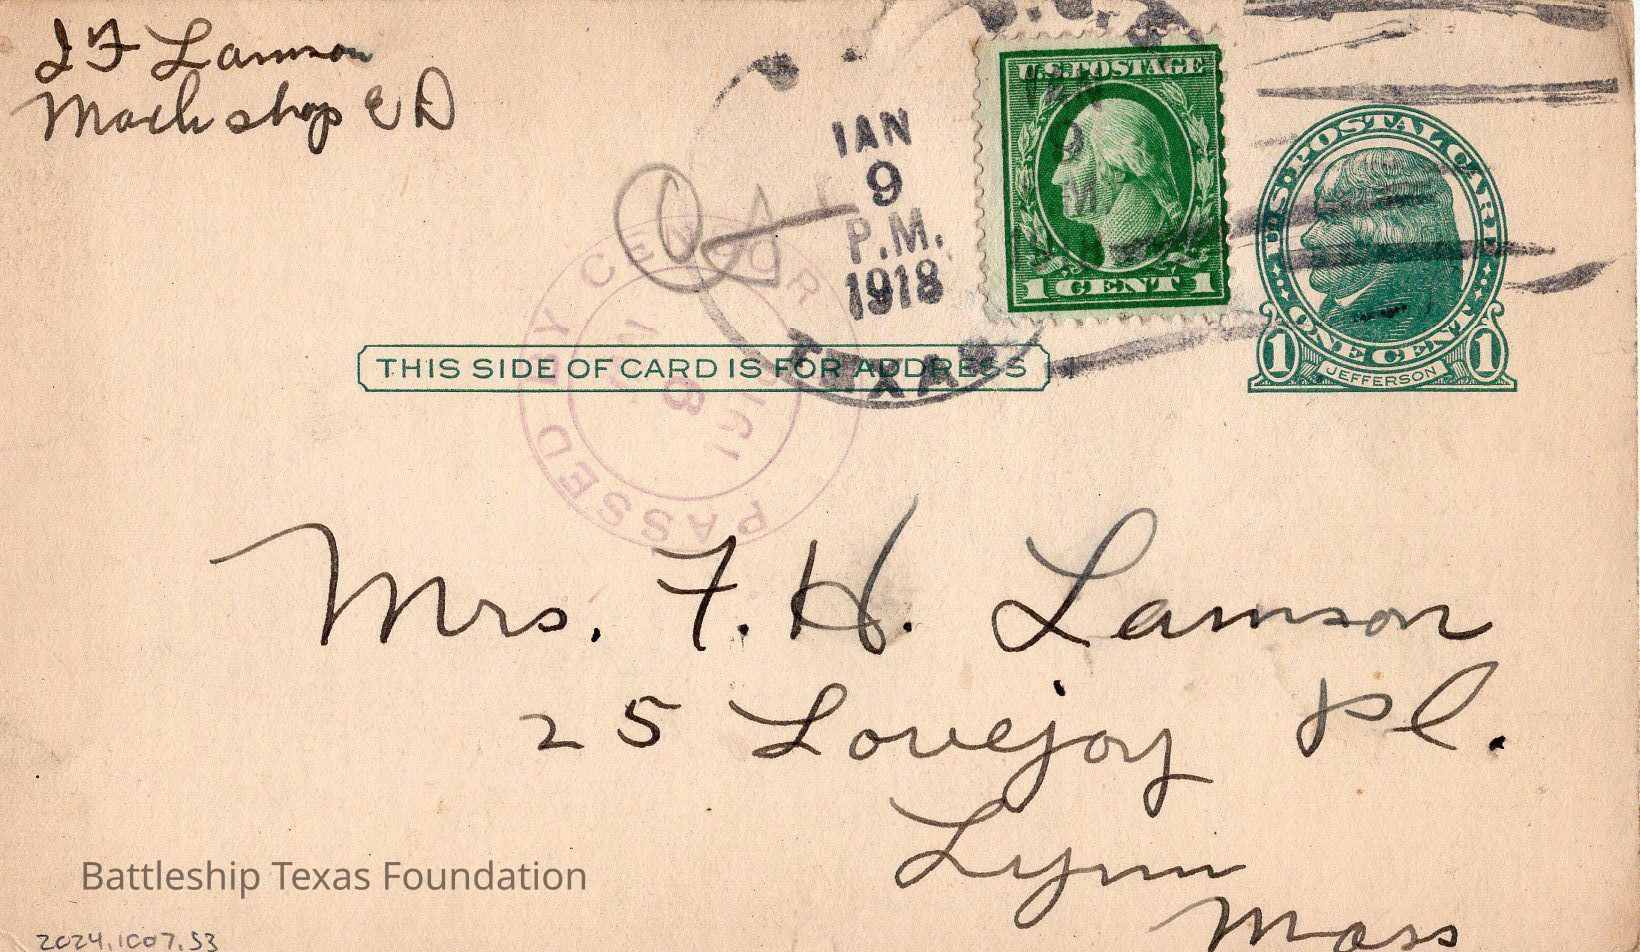 J F Lamson
Mach shop E D
U.S.
JAN
9
P.M.
1918
TEXAS
U.S. POSTAGE
1 CENT 1
U.S. POSTAL CARD
1 ONE CENT 1
JEFFERSON
PASSED BY CENSOR
JAN
9
THIS SIDE OF CARD IS FOR ADDRESS
Mrs. F. H. Lamson
25 Lovejoy Pl.
Lynn
Mass
Battleship Texas Foundation
2024.1C07.53